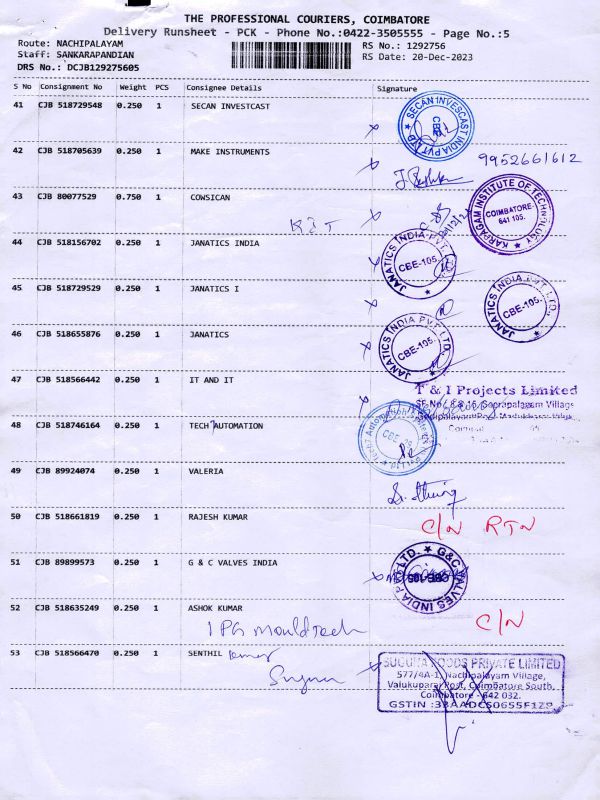 THE PROFESSIONAL COURIERS, COIMBATORE
Delivery Runsheet - PCK - Phone No.:0422-3505555 - Page No.:5
Route: NACHIPALAYAM
RS No.: 1292756
Staff: SANKARAPANDIAN
RS Date: 20-Dec-2023
DRS No.: DCJB129275605
S No Consignment No Weight PCS Consignee Details Signature
41 CJB 518729548 0.250 1 SECAN INVESTCAST
SECAN INVESCAST INDIA PVT LTD
CBE
42 CJB 518705639 0.250 1 MAKE INSTRUMENTS
9952661612
43 CJB 80077529 0.750 1 COWSICAN
KIT
KARPAGAM INSTITUTE OF TECHNOLOGY
COIMBATORE-
641 105.
44 CJB 518156702 0.250 1 JANATICS INDIA
JANATICS INDIA PVT. LTD.
CBE-105.
45 CJB 518729529 0.250 1 JANATICS I
JANATICS INDIA PVT. LTD.
CBE-105.
46 CJB 518655876 0.250 1 JANATICS
JANATICS INDIA PVT. LTD.
CBE-105.
47 CJB 518566442 0.250 1 IT AND IT
T & I Projects Limited
Village
48 CJB 518746164 0.250 1 TECH AUTOMATION
Automation
Pvt Ltd
CBE
49 CJB 89924074 0.250 1 VALERIA
50 CJB 518661819 0.250 1 RAJESH KUMAR
C/N RTN
51 CJB 89899573 0.250 1 G & C VALVES INDIA
G&C VALVES INDIA PVT LTD.
CBE-105
52 CJB 518635249 0.250 1 ASHOK KUMAR
C/N
mouldtech
53 CJB 518566470 0.250 1 SENTHIL
Suguna
SUGUNA FOODS PRIVATE LIMITED
577/4A-1, Nachipalayam Village,
Valukuparai Post, Coimbatore South,
Coimbatore - 642 032.
GSTIN :33AADCS0655F1ZP